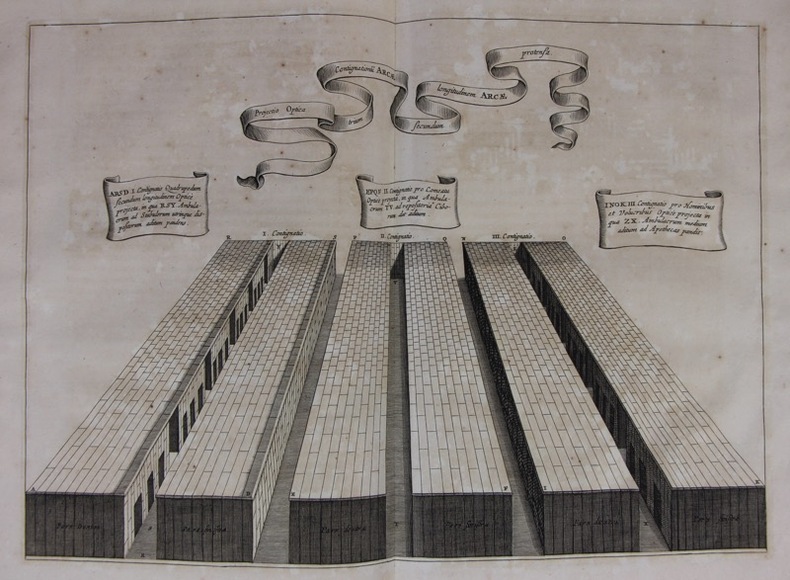 Projectio Optica
trium
Contignationũ ARCÆ
secundum
longitudinem ARCÆ
protensæ.
ARSD. I. Contignatio Quadrupedum
secundum longitudinem Optice
projecta, in qua RSY Ambula-
crum ad Stabulorum utrinque dis-
positorum aditum pandens.
EPQF. II. Contignatio pro Comeatu
Optice projecta, in qua Ambula-
crum TV ad repositoria Cibo-
rum dat aditum.
INOK. III. Contignatio pro Hominibus
et Volucribus Optice projecta in
qua ZX. Ambulacrum medium
aditum ad Apothecas pandit.
R I. Contignatio. S P II. Contignatio. Q N III. Contignatio. O
Y
A D E F I K
Pars dextra Pars sinistra